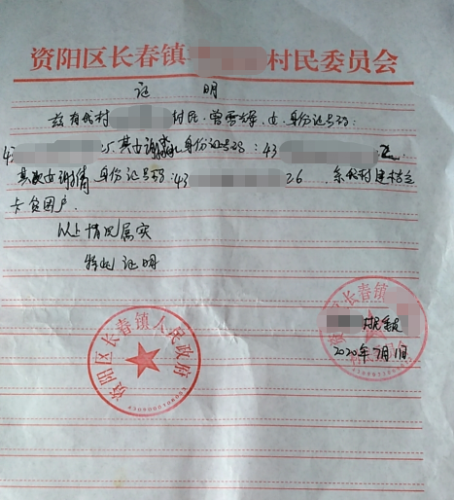 资阳区长春镇 村民委员会
证 明
兹有我村 村民 曾雪辉,女,身份证号码:
43 其女谢 身份证号码:43
其次女谢倩 身份证号码:43 26 . 系我村建档立
卡贫困户.
以上情况属实
特此证明
长春镇
2020年7月1日
资阳区长春镇人民政府